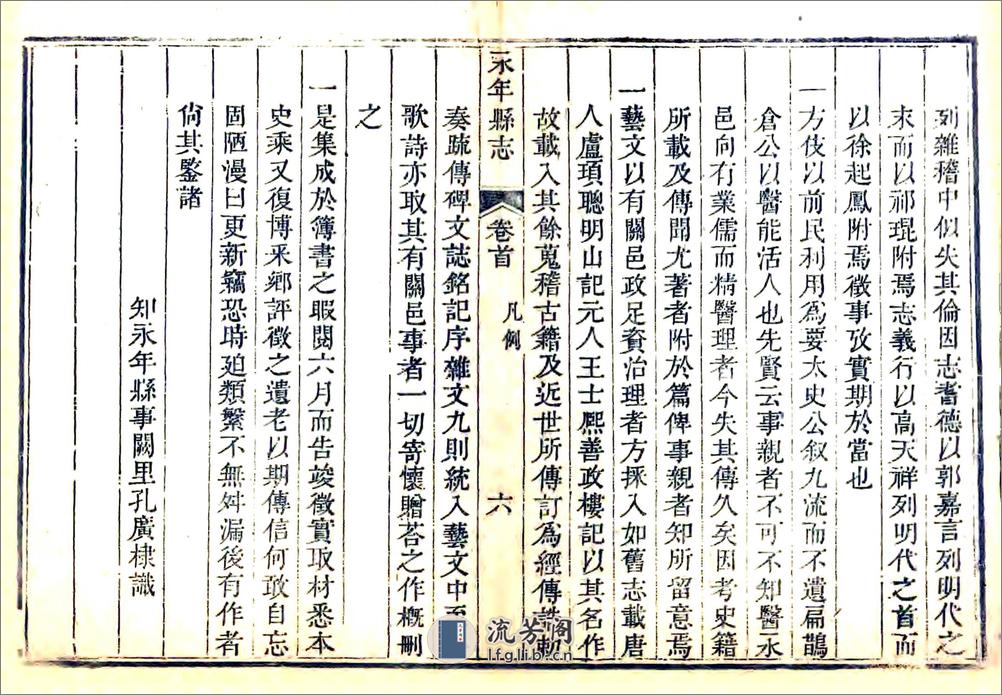 列雜稽中似失其倫因志耆德以郭嘉言列明代之
末而以祁琨附焉志義行以高天祥列明代之首而
以徐起鳳附焉徵事攷實期於當也
一方伎以前民利用爲要太史公叙九流而不遺扁鵲
倉公以醫能活人也先賢云事親者不可不知醫永
邑向有業儒而精醫理者今失其傳久矣因考史籍
所載及傳聞尤著者附於篇俾事親者知所留意焉
一藝文以有關邑政足資治理者方採入如舊志載唐
人盧頊聰明山記元人王士熈善政樓記以其名作
故載入其餘蒐稽古籍及近世所傳訂爲經傳誥勅
永年縣志 卷首 凡例 六
奏疏傳碑文誌銘記序雜文九則統入藝文中至
歌詩亦取其有關邑事者一切寄懷贈荅之作槪刪
之
一是集成於簿書之暇閱六月而告竣徵實取材悉本
史乘又復博釆鄉評徵之遺老以期傳信何敢自忘
固陋漫曰更新竊恐時廹類繫不無舛漏後有作者
尙其鑒諸
知永年縣事闕里孔廣棣識
流芳閣
lfglib.cn